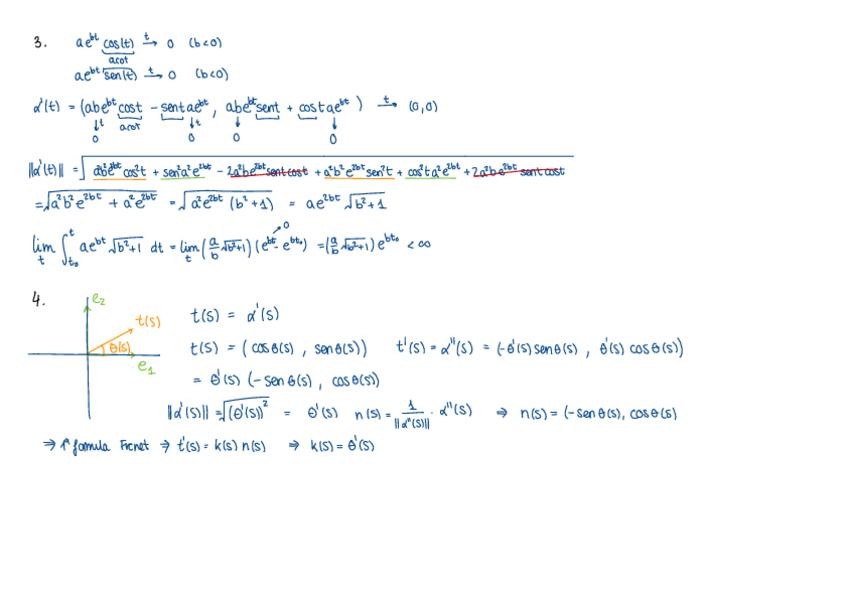 3. ae^bt cos(t) →^t 0 (b<0)
acot
ae^bt sen(t) →^t 0 (b<0)
α'(t) = (abe^bt cost - sent ae^bt, abe^bt sent + cost ae^bt) →^t (0,0)
↓t acot ↓t ↓ ↓
0 0 0 0
||α'(t)|| = √(a²b²e^2bt cos²t + sen²a²e^2bt - 2a²be^2bt sent cost + a²b²e^2bt sen²t + cos²t a²e^2bt + 2a²be^2bt sent cost)
= √(a²b²e^2bt + a²e^2bt) = √(a²e^2bt (b²+1)) = ae^2bt √(b²+1)
lim_t ∫_t₀^t ae^bt √(b²+1) dt = lim_t (a/b √(b²+1)) (e^bt - e^bt₀) = (a/b √(b²+1)) e^bt₀ < ∞
→0
4. e₂
t(s)
θ(s)
e₁
t(s) = α'(s)
t(s) = (cosθ(s), senθ(s)) t'(s) = α''(s) = (-θ'(s) senθ(s), θ'(s) cosθ(s))
= θ'(s) (-senθ(s), cosθ(s))
||α'(s)|| = √(θ'(s))² = θ'(s) n(s) = 1/||α''(s)|| · α''(s) ⇒ n(s) = (-senθ(s), cosθ(s))
⇒ 1ª formula Frenet ⇒ t'(s) = k(s) n(s) ⇒ k(s) = θ'(s)